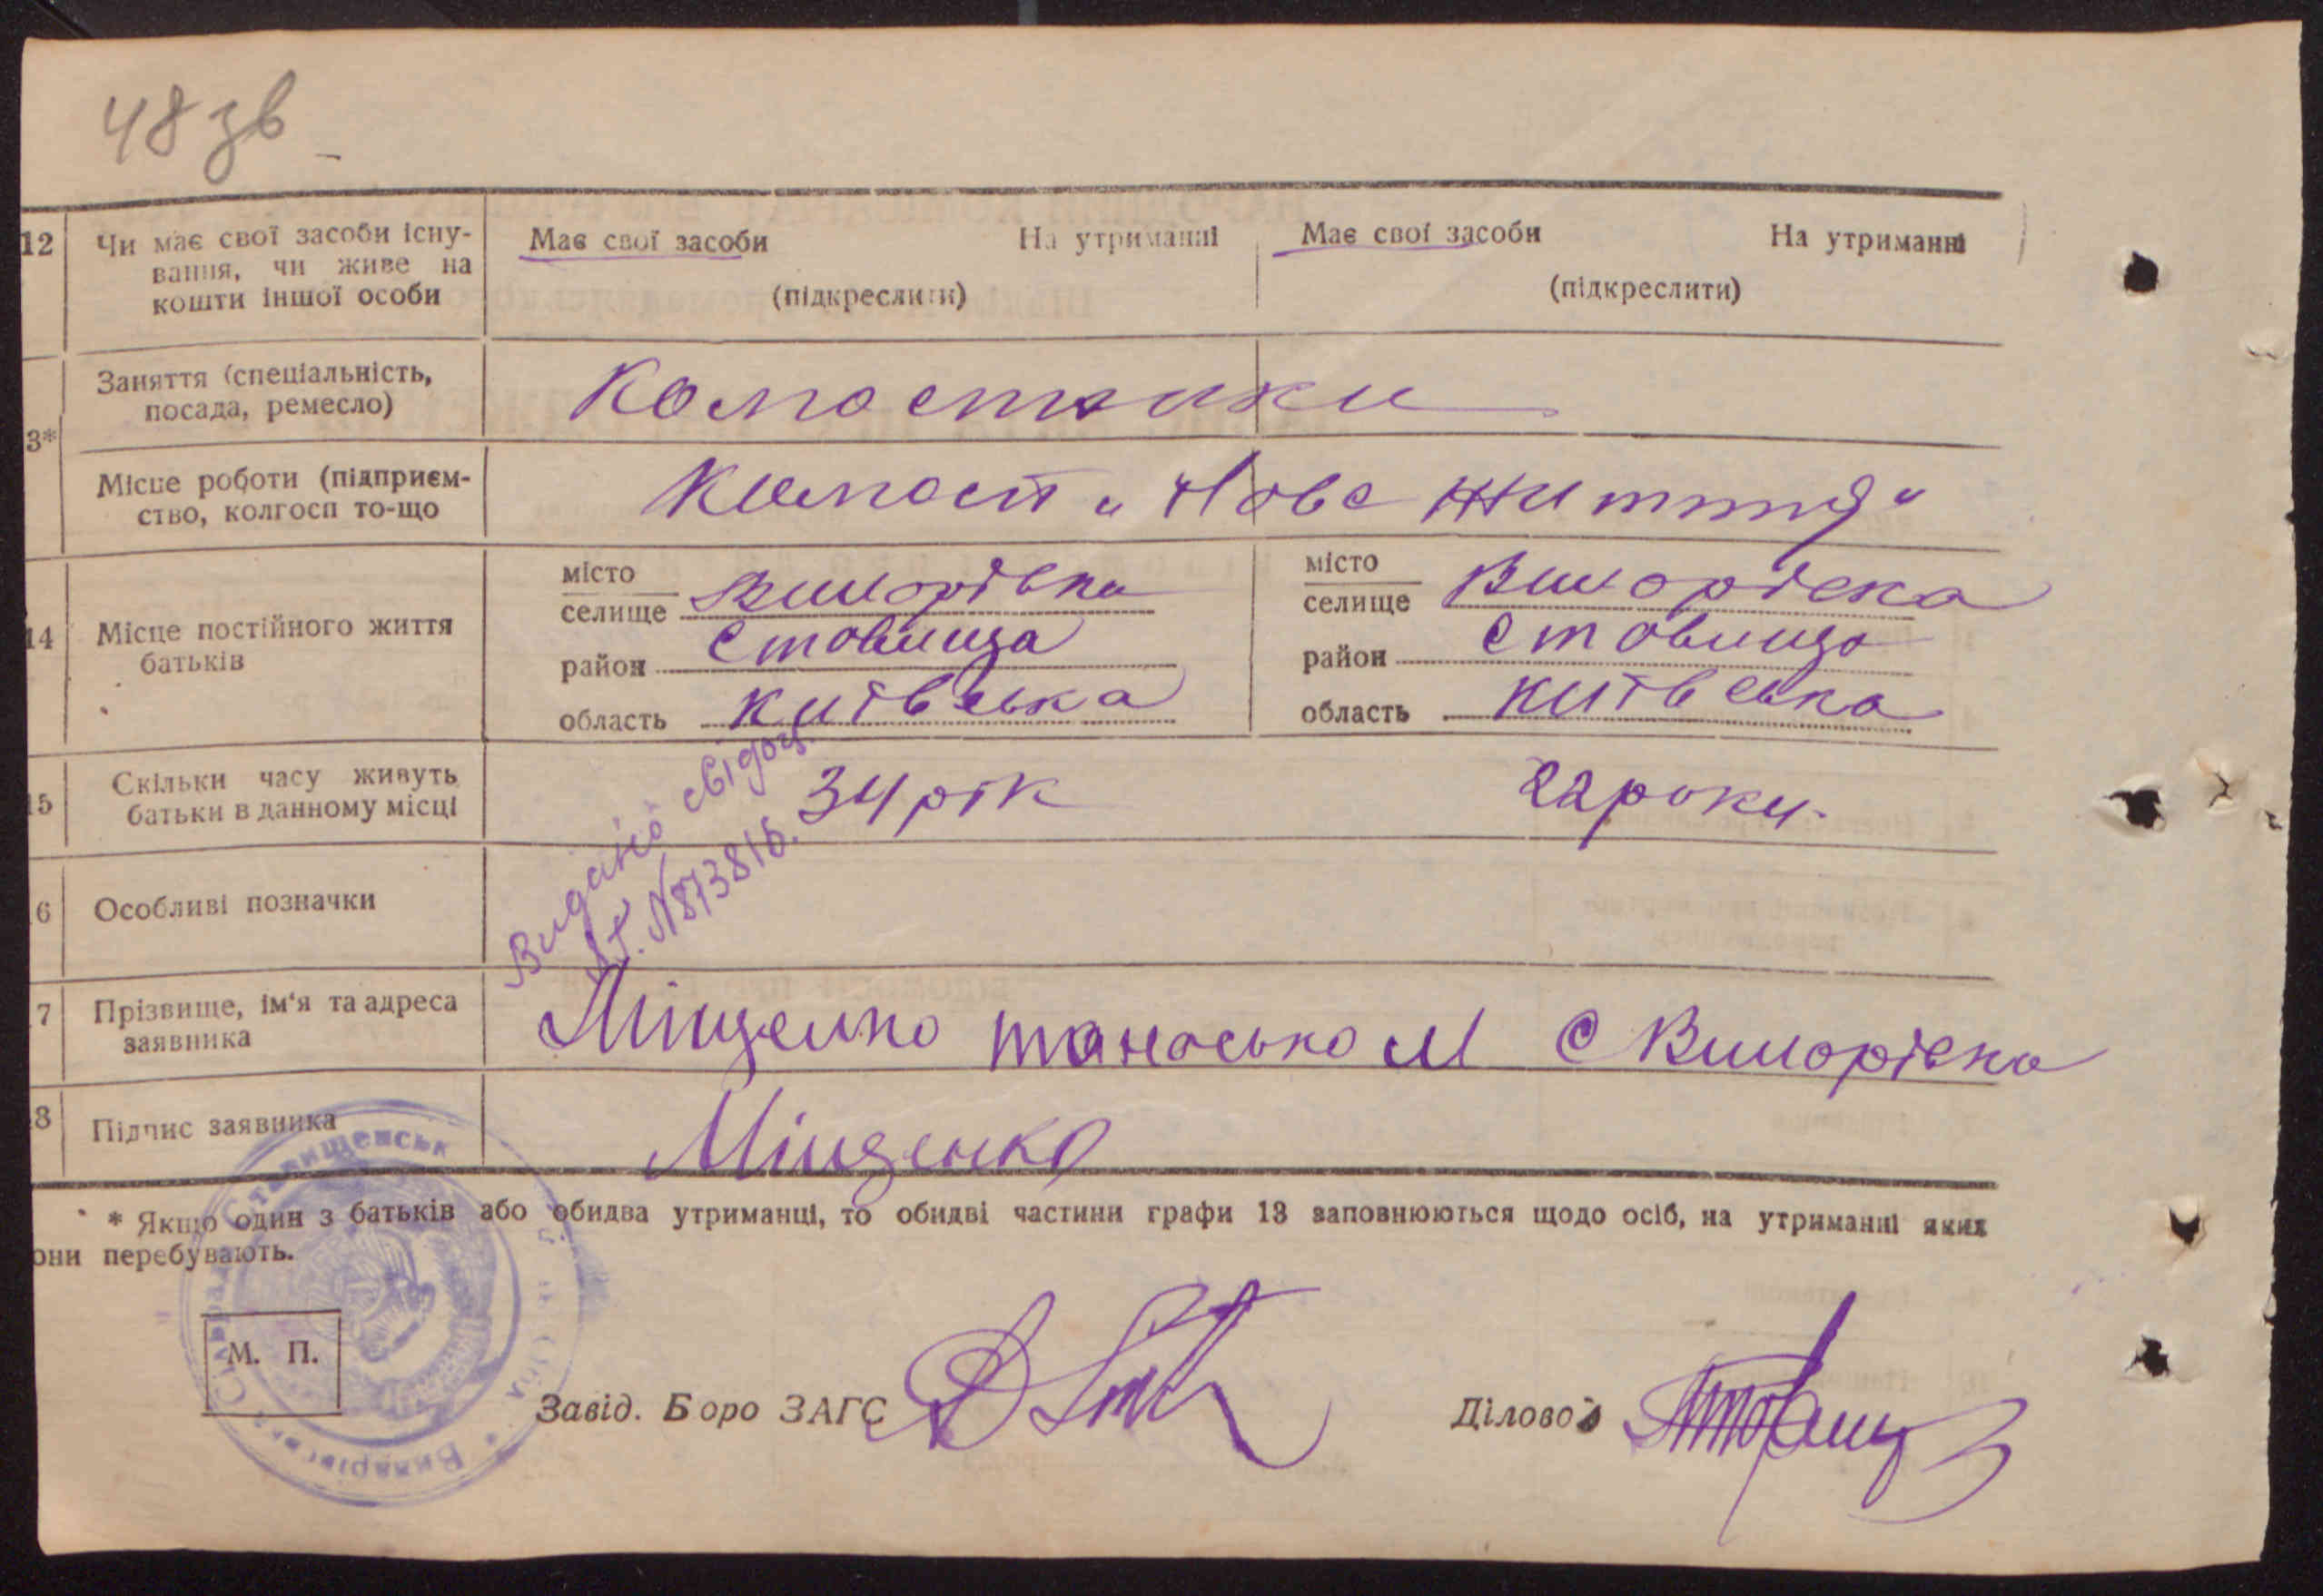 48 зв
12 Чи має свої засоби існу-
вання, чи живе на
кошти іншої особи
Має свої засоби На утриманні
(підкреслити)
Має свої засоби На утриманні
(підкреслити)
3* Заняття (спеціальність,
посада, ремесло)
Місце роботи (підприєм-
ство, колгосп то-що
"Нове життя"
14 Місце постійного життя
батьків
місто
селище Винорівка
район Ставища
область київська
місто
селище Винорівка
район Ставища
область київська
15 Скільки часу живуть
батьки в данному місці
34 рік
22 роки.
6 Особливі позначки
Видано свідоц.
№873816.
7 Прізвище, ім'я та адреса
заявника
Міщенко танасько М с Винорівка
8 Підпис заявника
Міщенко
* Якщо один з батьків або обидва утриманці, то обидві частини графи 13 заповнюються щодо осіб, на утриманні яких
они перебувають.
М. П.
Завід. Боро ЗАГС
Ділово